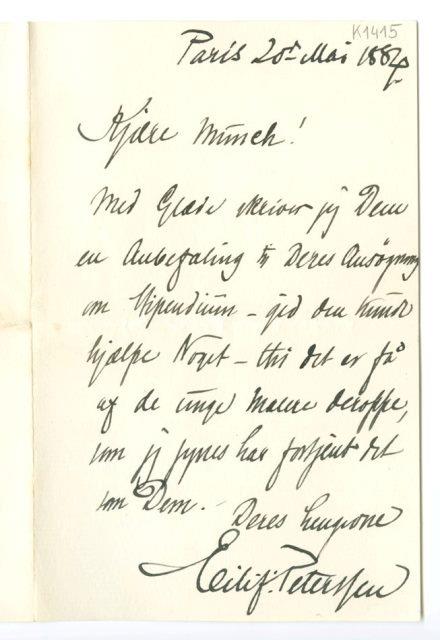 K1415
Paris 20de Mai 1884
Kjære Munch!
Med Glæde skriver jeg Dem
en Anbefaling til Deres Ansøgning
om Stipendium – gid den kunde
hjælpe Noget – thi det er få
af de unge Malere deroppe,
som jeg synes har fortjent det
som Dem.
Deres hengivne
Eilif Peterssen